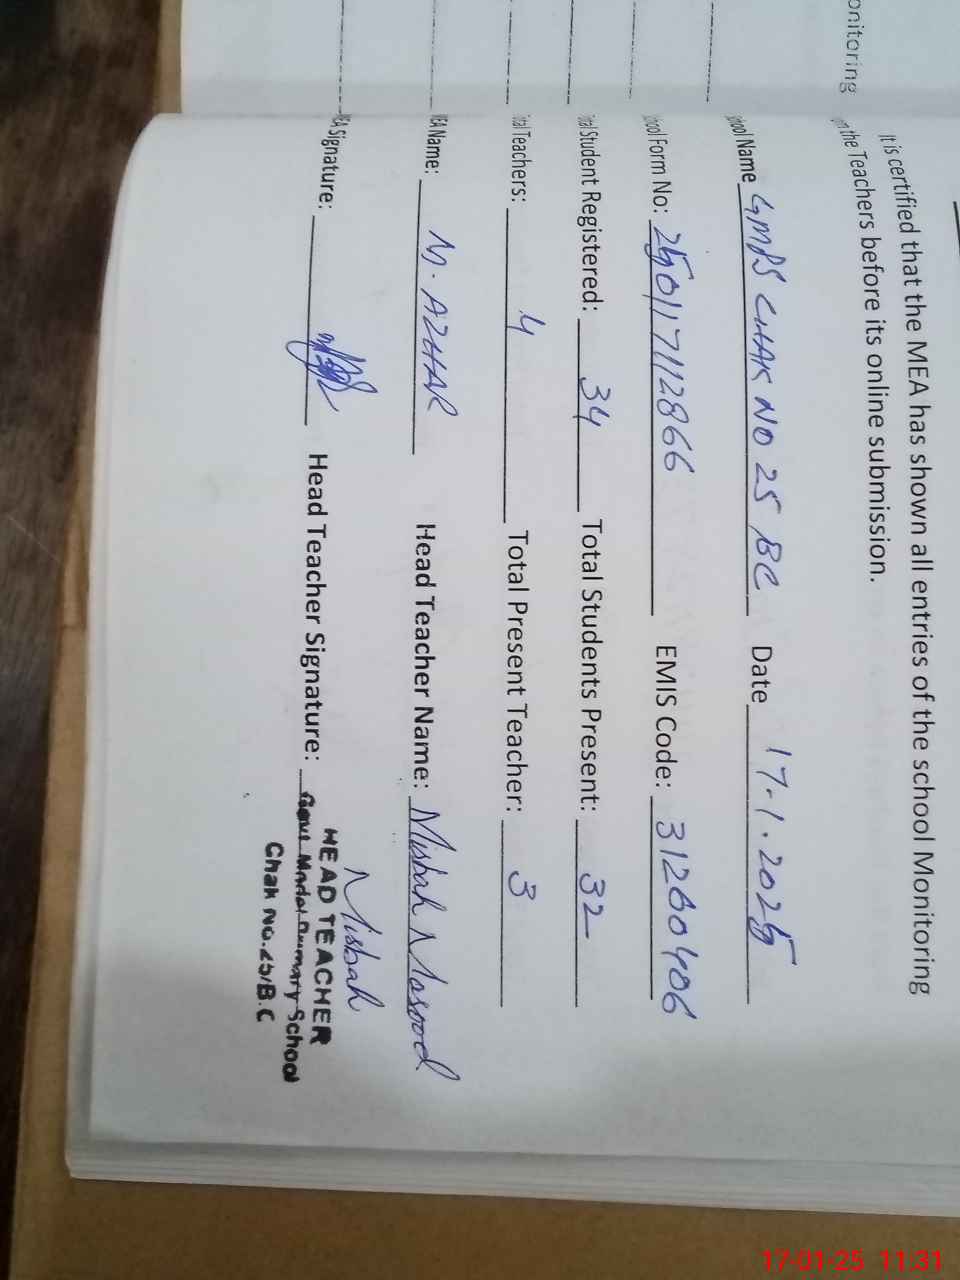 onitoring
It is certified that the MEA has shown all entries of the school Monitoring
the Teachers before its online submission.
hool Name GMPS CHAK NO 25 BC Date 17.1.2025
hool Form No: 2501171128 66 EMIS Code: 31260406
tal Student Registered: 34 Total Students Present: 32
tal Teachers: 4 Total Present Teacher: 3
EA Name: M. AZHAR Head Teacher Name: Misbah Masood
EA Signature: Head Teacher Signature: Misbah
HEAD TEACHER
Govt. Model Primary School
Chak No.25/B.C
17-01-25 11:31